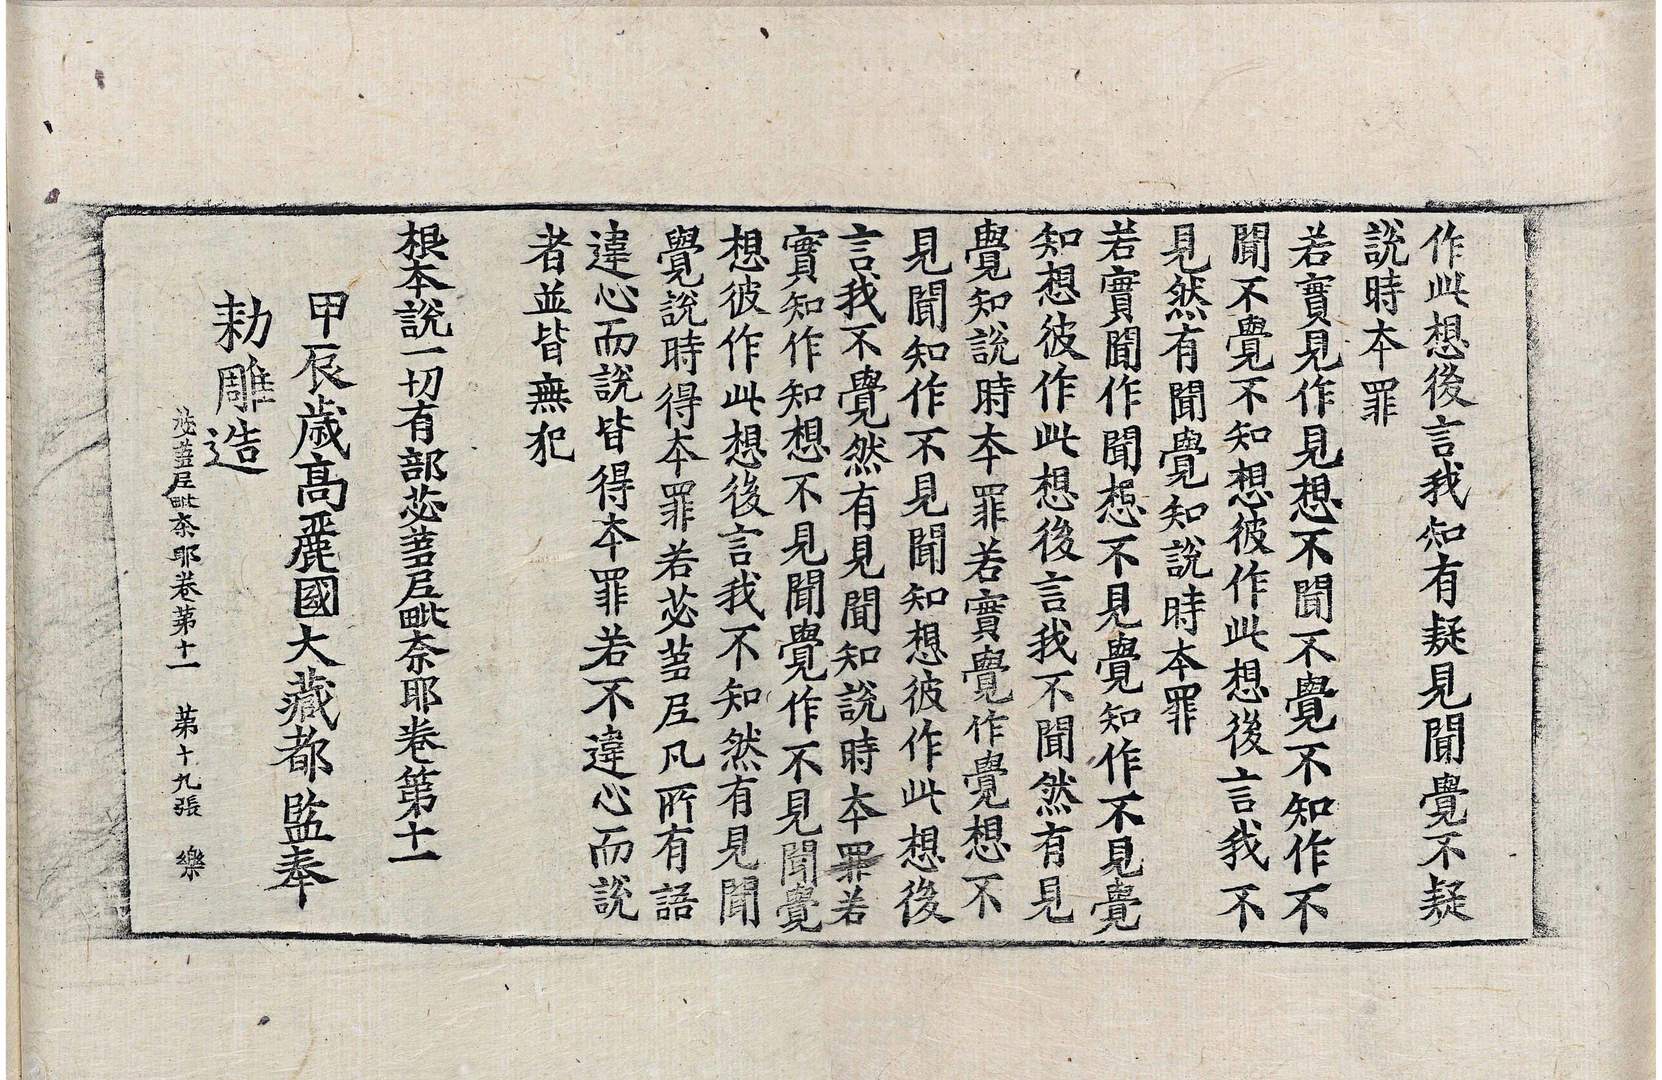 作此想後言我知有疑見聞覺不疑
說時本罪
若實見作見想不聞不覺不知作不
聞不覺不知想彼作此想後言我不
見然有聞覺知說時本罪
若實聞作聞想不見覺知作不見覺
知想彼作此想後言我不聞然有見
覺知說時本罪若實覺作覺想不
見聞知作不見聞知想彼作此想後
言我不覺然有見聞知說時本罪若
實知作知想不見聞覺作不見聞覺
想彼作此想後言我不知然有見聞
覺說時得本罪若苾蒭尼凡所有語
違心而說皆得本罪若不違心而說
者並皆無犯
根本說一切有部苾蒭尼毗奈耶卷第十一
甲辰歲高麗國大藏都監奉
勑雕造
苾蒭尼毗奈耶卷第十一 第十九張 樂